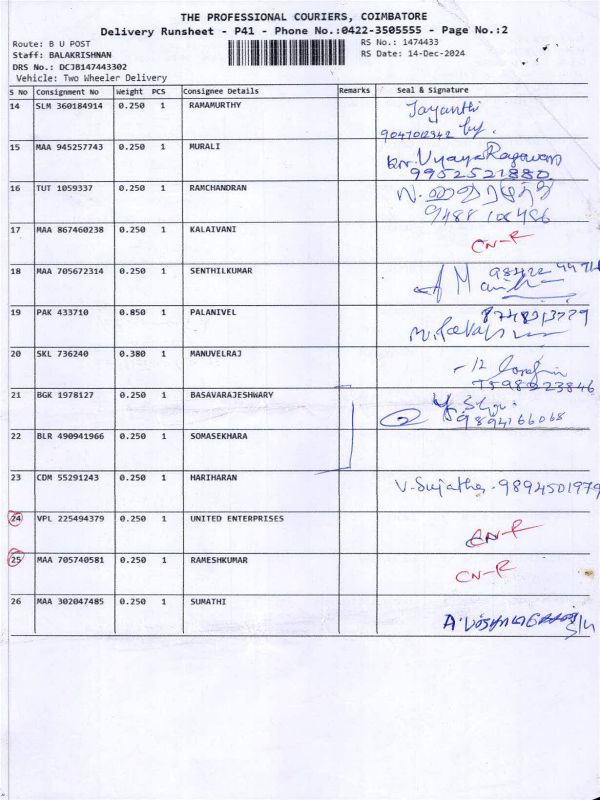 THE PROFESSIONAL COURIERS, COIMBATORE
Delivery Runsheet - P41 - Phone No.:0422-3505555 - Page No.:2
Route: B U POST
RS No.: 1474433
Staff: BALAKRISHNAN
RS Date: 14-Dec-2024
DRS No.: DCJB147443302
Vehicle: Two Wheeler Delivery
S No Consignment No Weight PCS Consignee Details Remarks Seal & Signature
14 SLM 360184914 0.250 1 RAMAMURTHY Jayanthi
15 MAA 945257743 0.250 1 MURALI
9952521880
16 TUT 1059337 0.250 1 RAMCHANDRAN
17 MAA 867460238 0.250 1 KALAIVANI CN-R
18 MAA 705672314 0.250 1 SENTHILKUMAR
19 PAK 433710 0.850 1 PALANIVEL
20 SKL 736240 0.380 1 MANUVELRAJ
7598923846
21 BGK 1978127 0.250 1 BASAVARAJESHWARY
9894166068
22 BLR 490941966 0.250 1 SOMASEKHARA
23 CDM 55291243 0.250 1 HARIHARAN V. Sujatha. 9894501979
24 VPL 225494379 0.250 1 UNITED ENTERPRISES CN-R
25 MAA 705740581 0.250 1 RAMESHKUMAR CN-R
26 MAA 302047485 0.250 1 SUMATHI